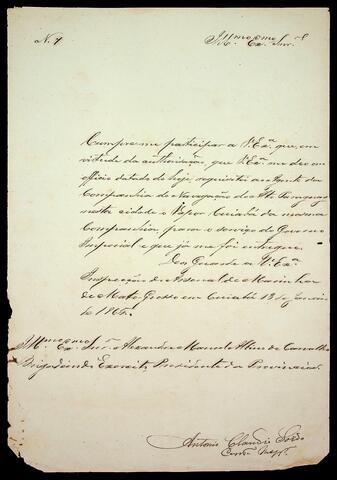 N. 7
Illmo e Exmo Snr.
Cumpre-me participar a V. Exª que, em
virtude da authorisação, que V. Exª me deo em
officio datado de hoje, requisitei ao Agente da
Companhia de Navegação do Alto Paraguay
nesta cidade o Vapor Cuiabá da mesma
Companhia, para o serviço do Governo
Imperial e que já me foi entregue.
Deos Guarde a V. Exª
Inspecção do Arsenal de Marinha
de Mato Grosso em Cuiabá 13 de Janeiro
de 1865.
Illmo e Exmo Snr. Alexandre Manoel Albino de Carvalho
Brigadeiro do Exercito, Presidente da Provincia.
Antonio Claudio Soido